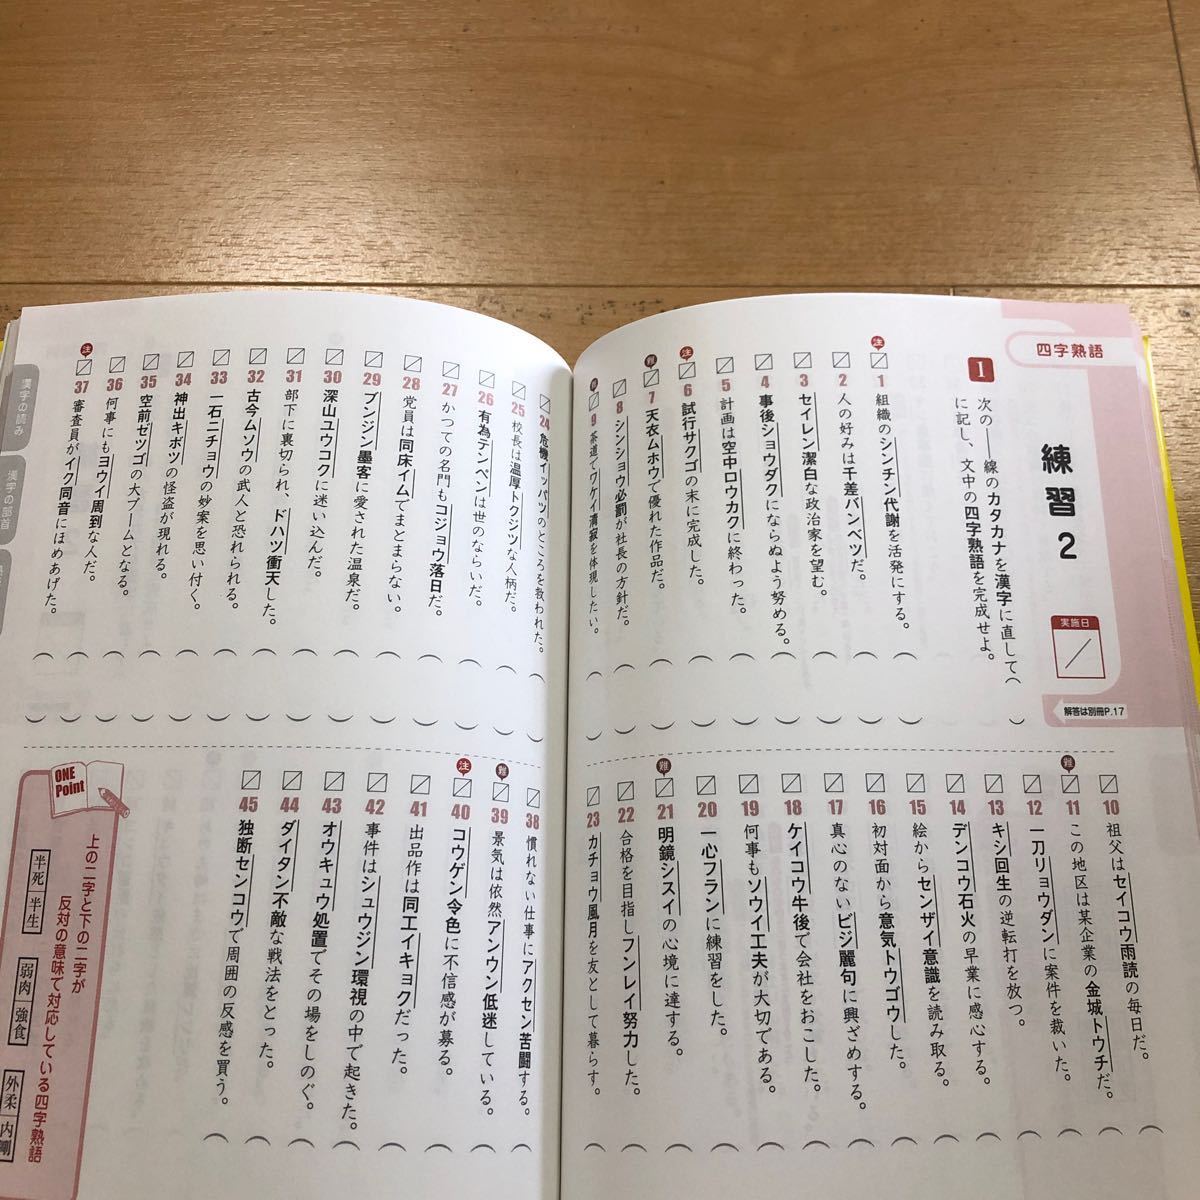 四字熟語
練習2
実施日
解答は別冊P.17
1
次の――線のカタカナを漢字に直して(　)
に記し、文中の四字熟語を完成せよ。
注
1 組織のシンチン代謝を活発にする。
2 人の好みは千差バンベツだ。
3 セイレン潔白な政治家を望む。
4 事後ショウダクにならぬよう努める。
5 計画は空中ロウカクに終わった。
注
6 試行サクゴの末に完成した。
難
7 天衣ムホウで優れた作品だ。
8 シンショウ必罰が社長の方針だ。
難
9 茶道でワケイ清寂を体現したい。
10 祖父はセイコウ雨読の毎日だ。
難
11 この地区は某企業の金城トウチだ。
12 一刀リョウダンに案件を裁いた。
13 キシ回生の逆転打を放つ。
14 デンコウ石火の早業に感心する。
15 絵からセンザイ意識を読み取る。
16 初対面から意気トウゴウした。
17 真心のないビジ麗句に興ざめする。
18 ケイコウ牛後で会社をおこした。
19 何事もソウイ工夫が大切である。
20 一心フランに練習をした。
難
21 明鏡シスイの心境に達する。
22 合格を目指しフンレイ努力した。
23 カチョウ風月を友として暮らす。
24 危機イッパツのところを救われた。
25 校長は温厚トクジツな人柄だ。
26 有為テンペンは世のならいだ。
27 かつての名門もコジョウ落日だ。
28 党員は同床イムでまとまらない。
29 ブンジン墨客に愛された温泉だ。
30 深山ユウコクに迷い込んだ。
31 部下に裏切られ、ドハツ衝天した。
32 古今ムソウの武人と恐れられる。
33 一石ニチョウの妙案を思い付く。
34 神出キボツの怪盗が現れる。
35 空前ゼツゴの大ブームとなる。
36 何事にもヨウイ周到な人だ。
注
37 審査員がイク同音にほめあげた。
38 慣れない仕事にアクセン苦闘する。
難
39 景気は依然アンウン低迷している。
注
40 コウゲン令色に不信感が募る。
41 出品作は同工イキョクだった。
42 事件はシュウジン環視の中で起きた。
43 オウキュウ処置でその場をしのぐ。
44 ダイタン不敵な戦法をとった。
45 独断センコウで周囲の反感を買う。
ONE Point
上の二字と下の二字が
反対の意味で対応している四字熟語
半死 半生
弱肉 強食
外柔 内剛
漢字の読み
漢字の部首